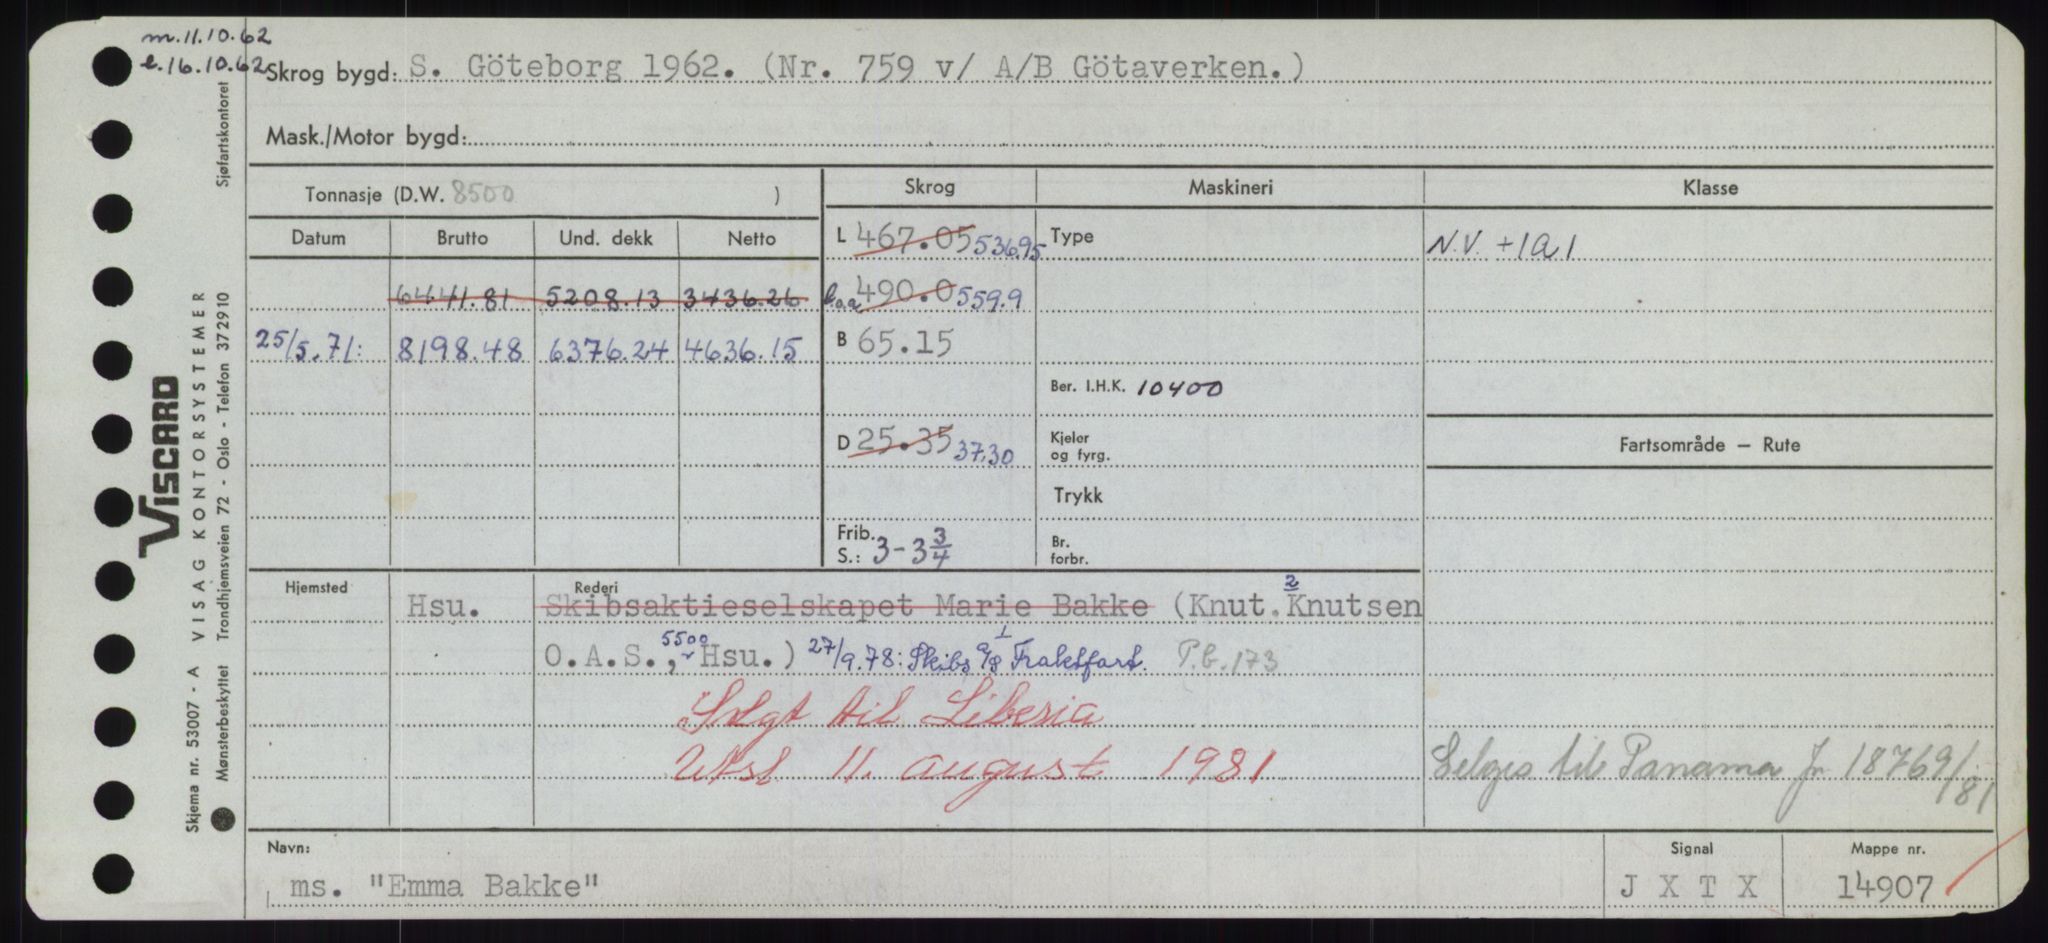 m.11.10.62
l.16.10.62
Skrog bygd: S. Göteborg 1962. (Nr. 759 v/ A/B Götaverken.)
Mask./Motor bygd:
Tonnasje (D.W. 8500 )
Skrog
Maskineri
Klasse
Datum
Brutto
Und. dekk
Netto
L 467.05 536.95
Type
N.V. +1A1
6441.81 5208.13 3436.26
l.o.a 490.0 559.9
25/5.71: 8198.48 6376.24 4636.15
B 65.15
Ber. I.H.K. 10400
D 25.35 37.30
Kjeler
og fyrg.
Fartsområde — Rute
Trykk
Frib.
S.: 3-3 3/4
Br.
forbr.
Hjemsted
Hsu.
Rederi
2
Skibsaktieselskapet Marie Bakke (Knut Knutsen
5500
O.A.S., Hsu.) 27/9.78: Skibs a/s Fraktfart. P.b.173
Solgt til Liberia
Utsl 11. august 1981
Selges til Panama Jn 18769/81
Navn:
ms. "Emma Bakke"
Signal
J X T X
Mappe nr.
14907
Sjøfartskontoret
VISCARD
VISAG KONTORSYSTEMER
Skjema nr. 53007 - A
Mønsterbeskyttet Trondhjemsveien 72 - Oslo - Telefon 372910